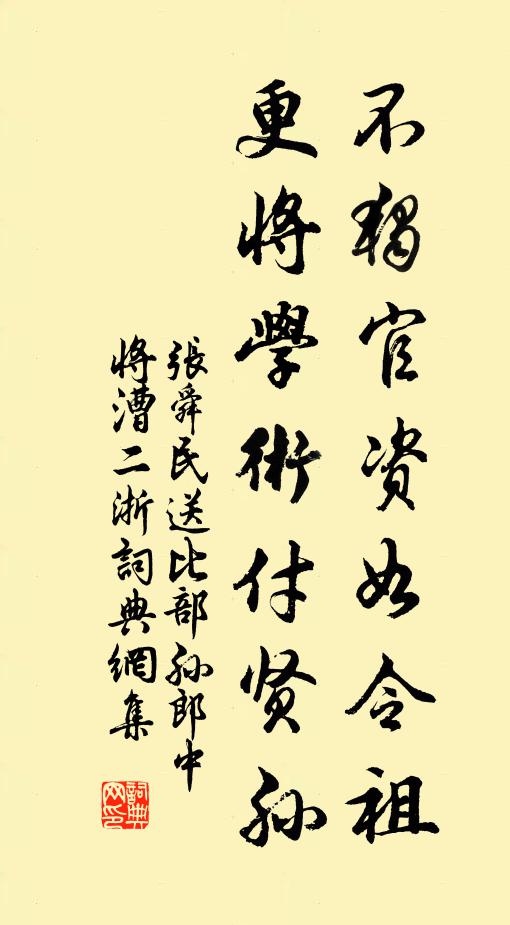 不独官资如令祖
更将学術付贤孙
張舜民送比部孙郎中
将漕二浙詞典網集
詞典网印